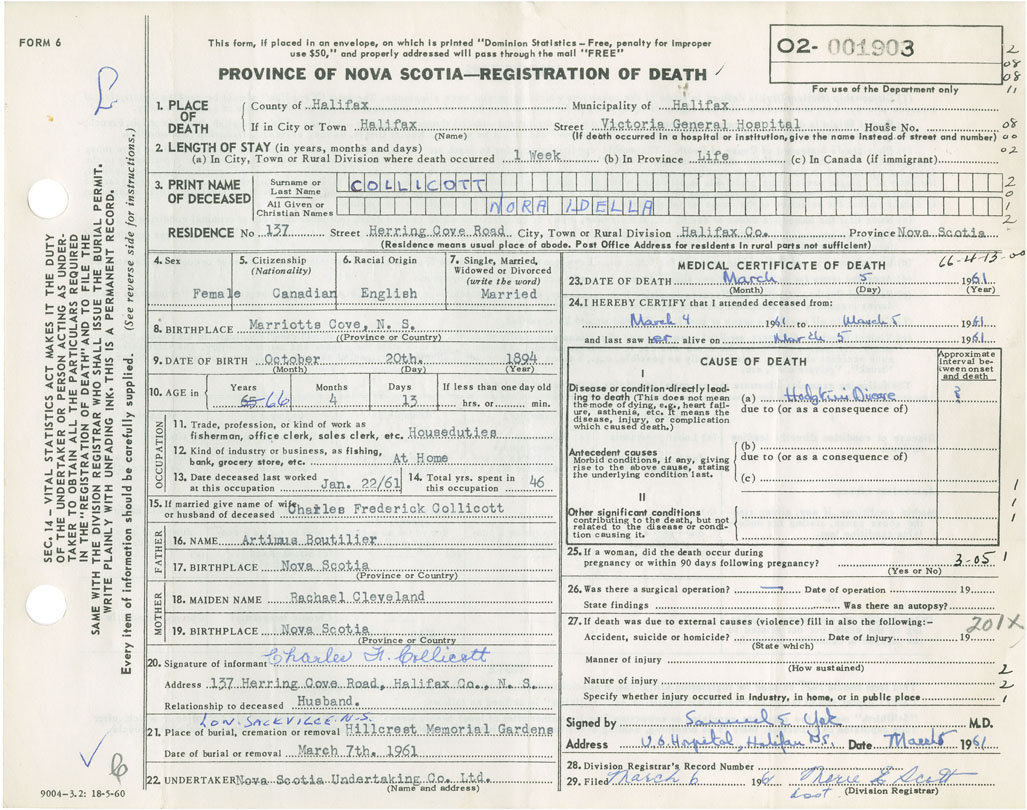 FORM 6
This form, if placed in an envelope, on which is printed "Dominion Statistics – Free, penalty for improper
use $50," and properly addressed will pass through the mail "FREE"
PROVINCE OF NOVA SCOTIA—REGISTRATION OF DEATH
02- 001903
For use of the Department only
2
08
08
11
08
00
02
2
0
1
2
SEC. 14 – VITAL STATISTICS ACT MAKES IT THE DUTY
OF THE UNDERTAKER OR PERSON ACTING AS UNDER-
TAKER TO OBTAIN ALL THE PARTICULARS REQUIRED
IN THE "REGISTRATION OF DEATH" AND TO FILE THE
SAME WITH THE DIVISION REGISTRAR WHO SHALL ISSUE THE BURIAL PERMIT.
WRITE PLAINLY WITH UNFADING INK–THIS IS A PERMANENT RECORD.
Every item of information should be carefully supplied. (See reverse side for instructions.)
1. PLACE OF DEATH
County of Halifax Municipality of Halifax
If in City or Town Halifax Street Victoria General Hospital House No.
(Name) (If death occurred in a hospital or institution, give the name instead of street and number)
2. LENGTH OF STAY (in years, months and days)
(a) In City, Town or Rural Division where death occurred 1 Week (b) In Province Life (c) In Canada (if immigrant)
3. PRINT NAME OF DECEASED
Surname or Last Name COLLICOTT
All Given or Christian Names NORA IDELLA
RESIDENCE No 137 Street Herring Cove Road City, Town or Rural Division Halifax Co. Province Nova Scotia
(Residence means usual place of abode. Post Office Address for residents in rural parts not sufficient)
4. Sex
Female
5. Citizenship
(Nationality)
Canadian
6. Racial Origin
English
7. Single, Married,
Widowed or Divorced
(write the word)
Married
8. BIRTHPLACE Marriotts Cove, N. S.
((Province or Country)
9. DATE OF BIRTH October 20th. 1894
(Month) (Day) (Year)
10. AGE in
Years Months Days If less than one day old
65 66 4 13 hrs. or min.
OCCUPATION
11. Trade, profession, or kind of work as
fisherman, office clerk, sales clerk, etc. Houseduties
12. Kind of industry or business, as fishing,
bank, grocery store, etc. At Home
13. Date deceased last worked
at this occupation Jan. 22/61
14. Total yrs. spent in
this occupation 46
15. If married give name of wife
or husband of deceased Charles Frederick Collicott
FATHER
16. NAME Artimus Boutilier
17. BIRTHPLACE Nova Scotia
(Province or Country)
MOTHER
18. MAIDEN NAME Rachael Cleveland
19. BIRTHPLACE Nova Scotia
(Province or Country
20. Signature of informant Charles F. Collicott
Address 137 Herring Cove Road, Halifax Co., N. S.
Relationship to deceased Husband.
LOW. SACKVILLE N.S.
21. Place of burial, cremation or removal Hillcrest Memorial Gardens
Date of burial or removal March 7th. 1961
22. UNDERTAKER Nova Scotia Undertaking Co. Ltd.
(Name and address)
9004–3.2: 18-5-60
MEDICAL CERTIFICATE OF DEATH
66-4-13-00
23. DATE OF DEATH March 5 1961
(Month) (Day) (Year)
24. I HEREBY CERTIFY that I attended deceased from:
March 4 1961 to March 5 1961
and last saw her alive on March 5 1961
CAUSE OF DEATH
Approximate
interval be-
tween onset
and death
I
Disease or condition directly lead-
ing to death (This does not mean
the mode of dying, e.g., heart fail-
ure, asthenia, etc. It means the
disease, injury, or complication
which caused death.)
(a) Hodgkin's Disease ?
due to (or as a consequence of)
Antecedent causes
Morbid conditions, if any, giving
rise to the above cause, stating
the underlying condition last.
(b)
due to (or as a consequence of)
(c)
II
Other significant conditions
contributing to the death, but not
related to the disease or condit-
ion causing it.
1
1
1
25. If a woman, did the death occur during
pregnancy or within 90 days following pregnancy? 3-05 1
(Yes or No)
26. Was there a surgical operation? — Date of operation 19
State findings Was there an autopsy?
27. If death was due to external causes (violence) fill in also the following:–
201X
Accident, suicide or homicide? Date of injury 19
(State which)
Manner of injury 2
(How sustained)
Nature of injury 2
Specify whether injury occurred in industry, in home, or in public place 1
Signed by Samuel E. York M.D.
Address V.G. Hospital, Halifax N.S. Date March 5 1961
28. Division Registrar's Record Number
29. Filed March 6 1961 Marie L Scott
(Division Registrar)